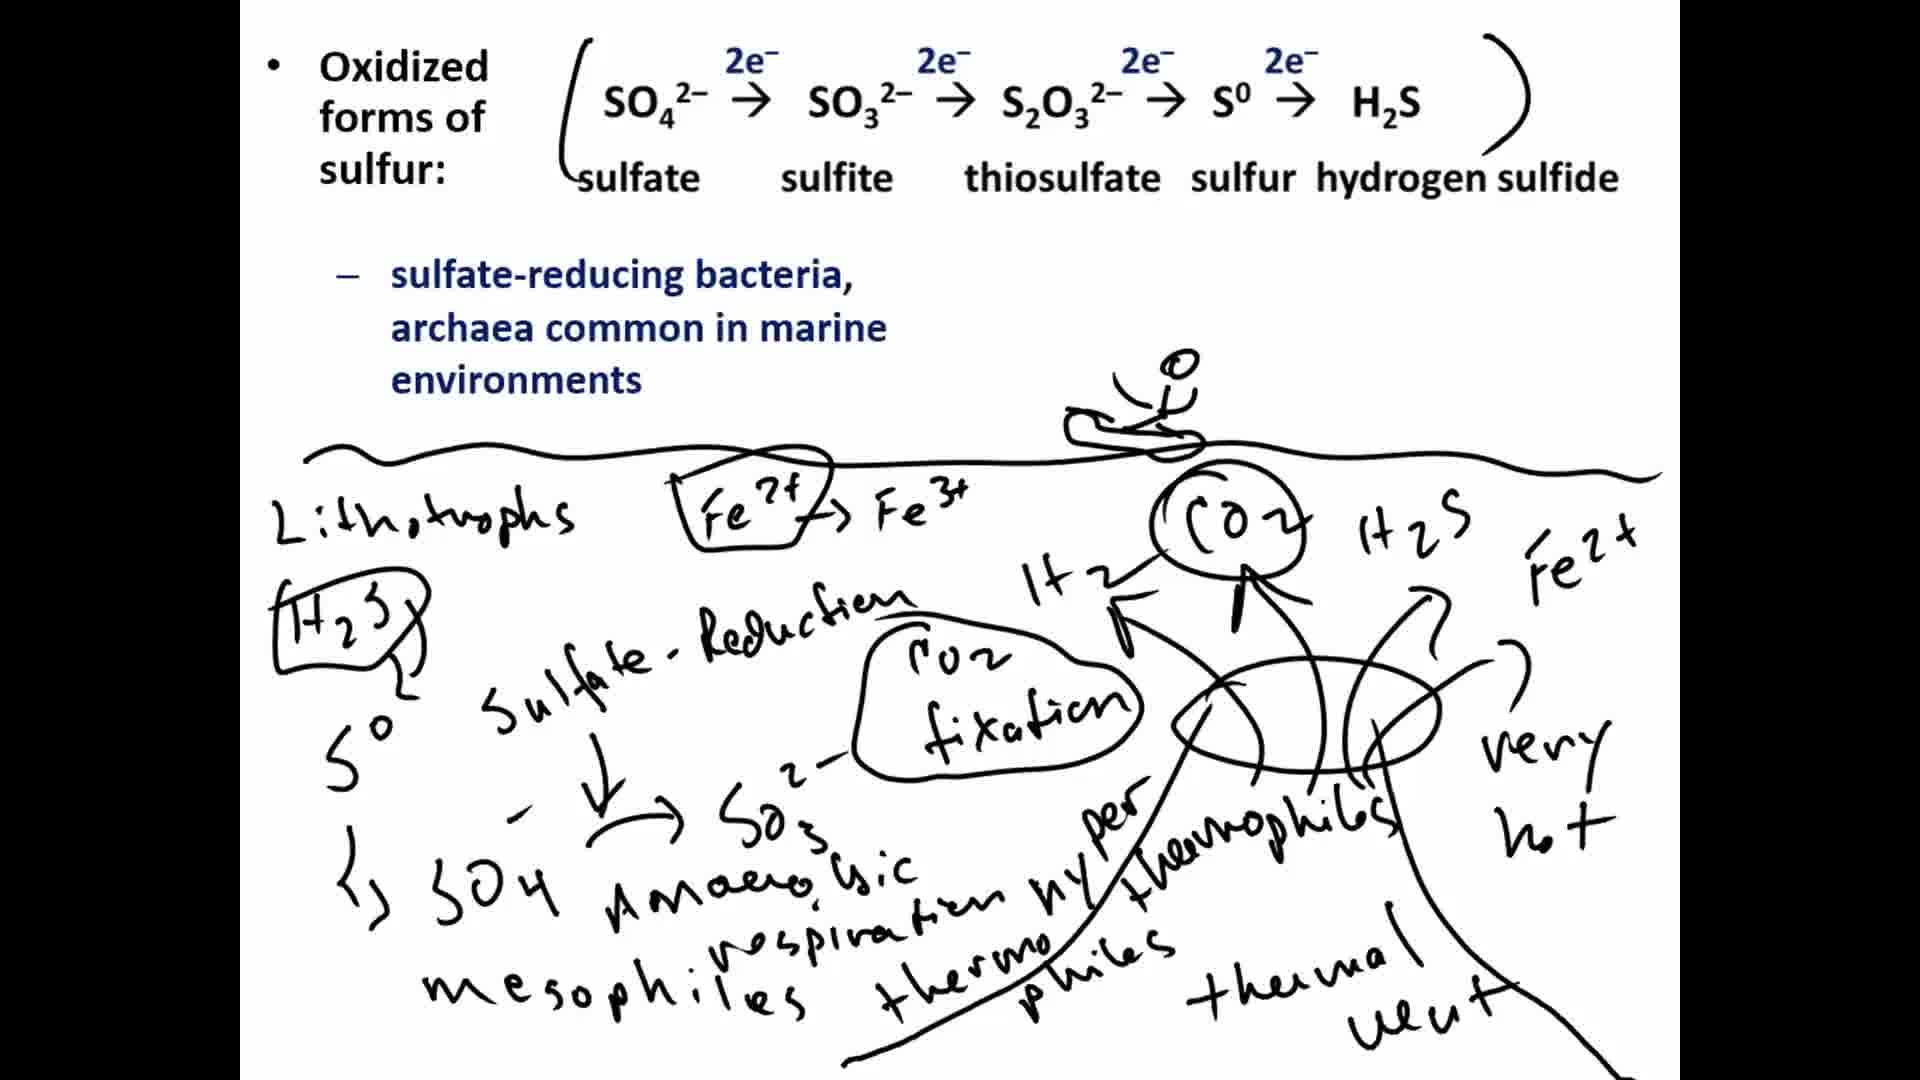 • Oxidized forms of sulfur:
2e⁻ 2e⁻ 2e⁻ 2e⁻
SO₄²⁻ → SO₃²⁻ → S₂O₃²⁻ → S⁰ → H₂S
sulfate sulfite thiosulfate sulfur hydrogen sulfide
– sulfate-reducing bacteria,
archaea common in marine
environments
Lithotrophs
Fe²⁺ → Fe³⁺
CO₂
H₂S
Fe²⁺
H₂
H₂S
Sulfate-Reduction
CO₂
fixation
S⁰
SO₄⁻ → SO₃²⁻
very
hot
Anaerobic
respiration
hyper
thermophiles
mesophiles
thermo
philes
thermal
vent